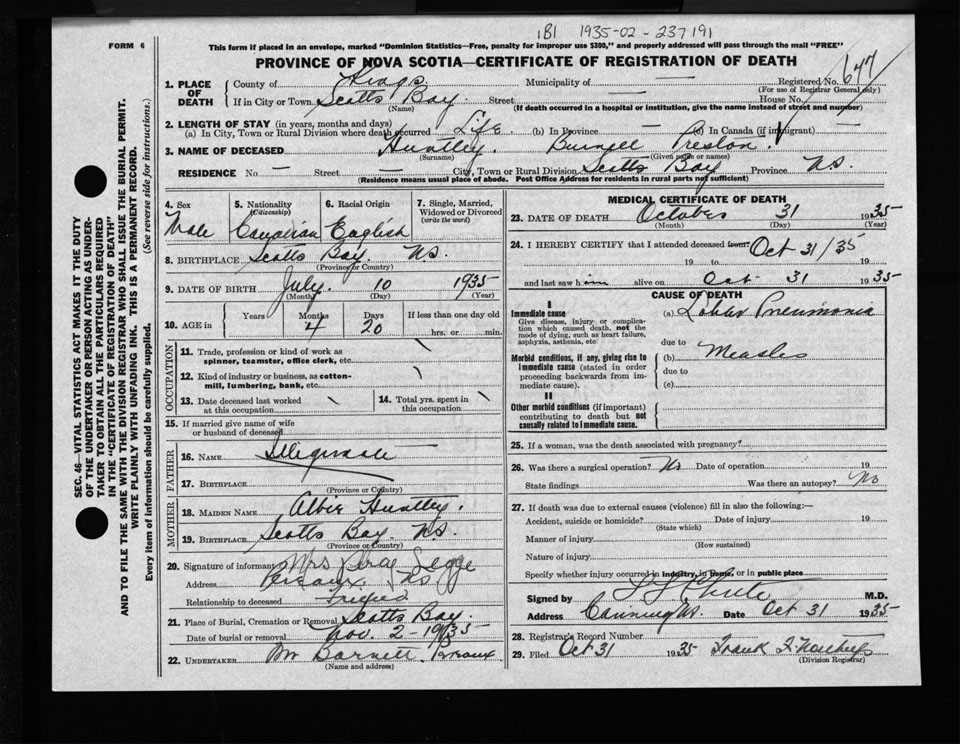 1B1 1935-02-237191
FORM 6
This form if placed in an envelope, marked "Dominion Statistics—Free, penalty for improper use $300," and properly addressed will pass through the mail "FREE"
PROVINCE OF NOVA SCOTIA—CERTIFICATE OF REGISTRATION OF DEATH
SEC. 46—VITAL STATISTICS ACT MAKES IT THE DUTY
OF THE UNDERTAKER OR PERSON ACTING AS UNDER-
TAKER TO OBTAIN ALL THE PARTICULARS REQUIRED
IN THE "CERTIFICATE OF REGISTRATION OF DEATH"
AND TO FILE THE SAME WITH THE DIVISION REGISTRAR WHO SHALL ISSUE THE BURIAL PERMIT.
WRITE PLAINLY WITH UNFADING INK. THIS IS A PERMANENT RECORD.
Every item of information should be carefully supplied. (See reverse side for instructions.)
1. PLACE OF DEATH County of Kings Municipality of — Registered No. 677
(For use of Registrar General only)
If in City or Town Scotts Bay. Street — House No.
(Name) (If death occurred in a hospital or institution, give the name instead of street and number)
2. LENGTH OF STAY (in years, months and days)
(a) In City, Town or Rural Division where death occurred Life. (b) In Province — (c) In Canada (if immigrant) —
3. NAME OF DECEASED Huntley. Burnell Preston.
(Surname) (Given name or names)
RESIDENCE No. — Street — City, Town or Rural Division Scotts Bay Province N.S.
(Residence means usual place of abode. Post Office Address for residents in rural parts not sufficient)
4. Sex 5. Nationality (Citizenship) 6. Racial Origin 7. Single, Married, Widowed or Divorced (write the word)
Male Canadian English
8. BIRTHPLACE Scotts Bay. N.S.
(Province or Country)
9. DATE OF BIRTH July. 10 1935
(Month) (Day) (Year)
10. AGE in Years Months Days If less than one day old
4 20 hrs. or min.
OCCUPATION
11. Trade, profession or kind of work as spinner, teamster, office clerk, etc. \
12. Kind of industry or business, as cotton-mill, lumbering, bank, etc. \
13. Date deceased last worked at this occupation \ 14. Total yrs. spent in this occupation \
15. If married give name of wife or husband of deceased —
FATHER
16. NAME Illegimate
17. BIRTHPLACE
(Province or Country)
MOTHER
18. MAIDEN NAME Huntley.
19. BIRTHPLACE Scotts Bay. N.S.
(Province or Country)
20. Signature of informant Mrs
Address N.S
Relationship to deceased Friend
21. Place of Burial, Cremation or Removal Scotts Bay.
Date of burial or removal Nov. 2-1935
22. UNDERTAKER Mr Barnett.
(Name and address)
MEDICAL CERTIFICATE OF DEATH
23. DATE OF DEATH October 31 1935
(Month) (Day) (Year)
24. I HEREBY CERTIFY that I attended deceased from Oct 31/35
19 to 19
and last saw him alive on Oct 31 1935
CAUSE OF DEATH
I
Immediate cause
Give disease, injury or complication which caused death, not the mode of dying, such as heart failure, asphyxia, asthenia, etc.
(a) Lobar Pneumonia
due to
Morbid conditions, if any, giving rise to immediate cause (stated in order proceeding backwards from immediate cause).
(b) Measles
due to
(c)
II
Other morbid conditions (if important) contributing to death but not causally related to immediate cause.
25. If a woman, was the death associated with pregnancy?
26. Was there a surgical operation? No Date of operation 19
State findings Was there an autopsy? No
27. If death was due to external causes (violence) fill in also the following:—
Accident, suicide or homicide? Date of injury 19
(State which)
Manner of injury
(How sustained)
Nature of injury
Specify whether injury occurred in industry, in home, or in public place
Signed by M.D.
Address Canning N.S. Date Oct 31 1935
28. Registrar's Record Number
29. Filed Oct 31 1935 Frank
(Division Registrar)